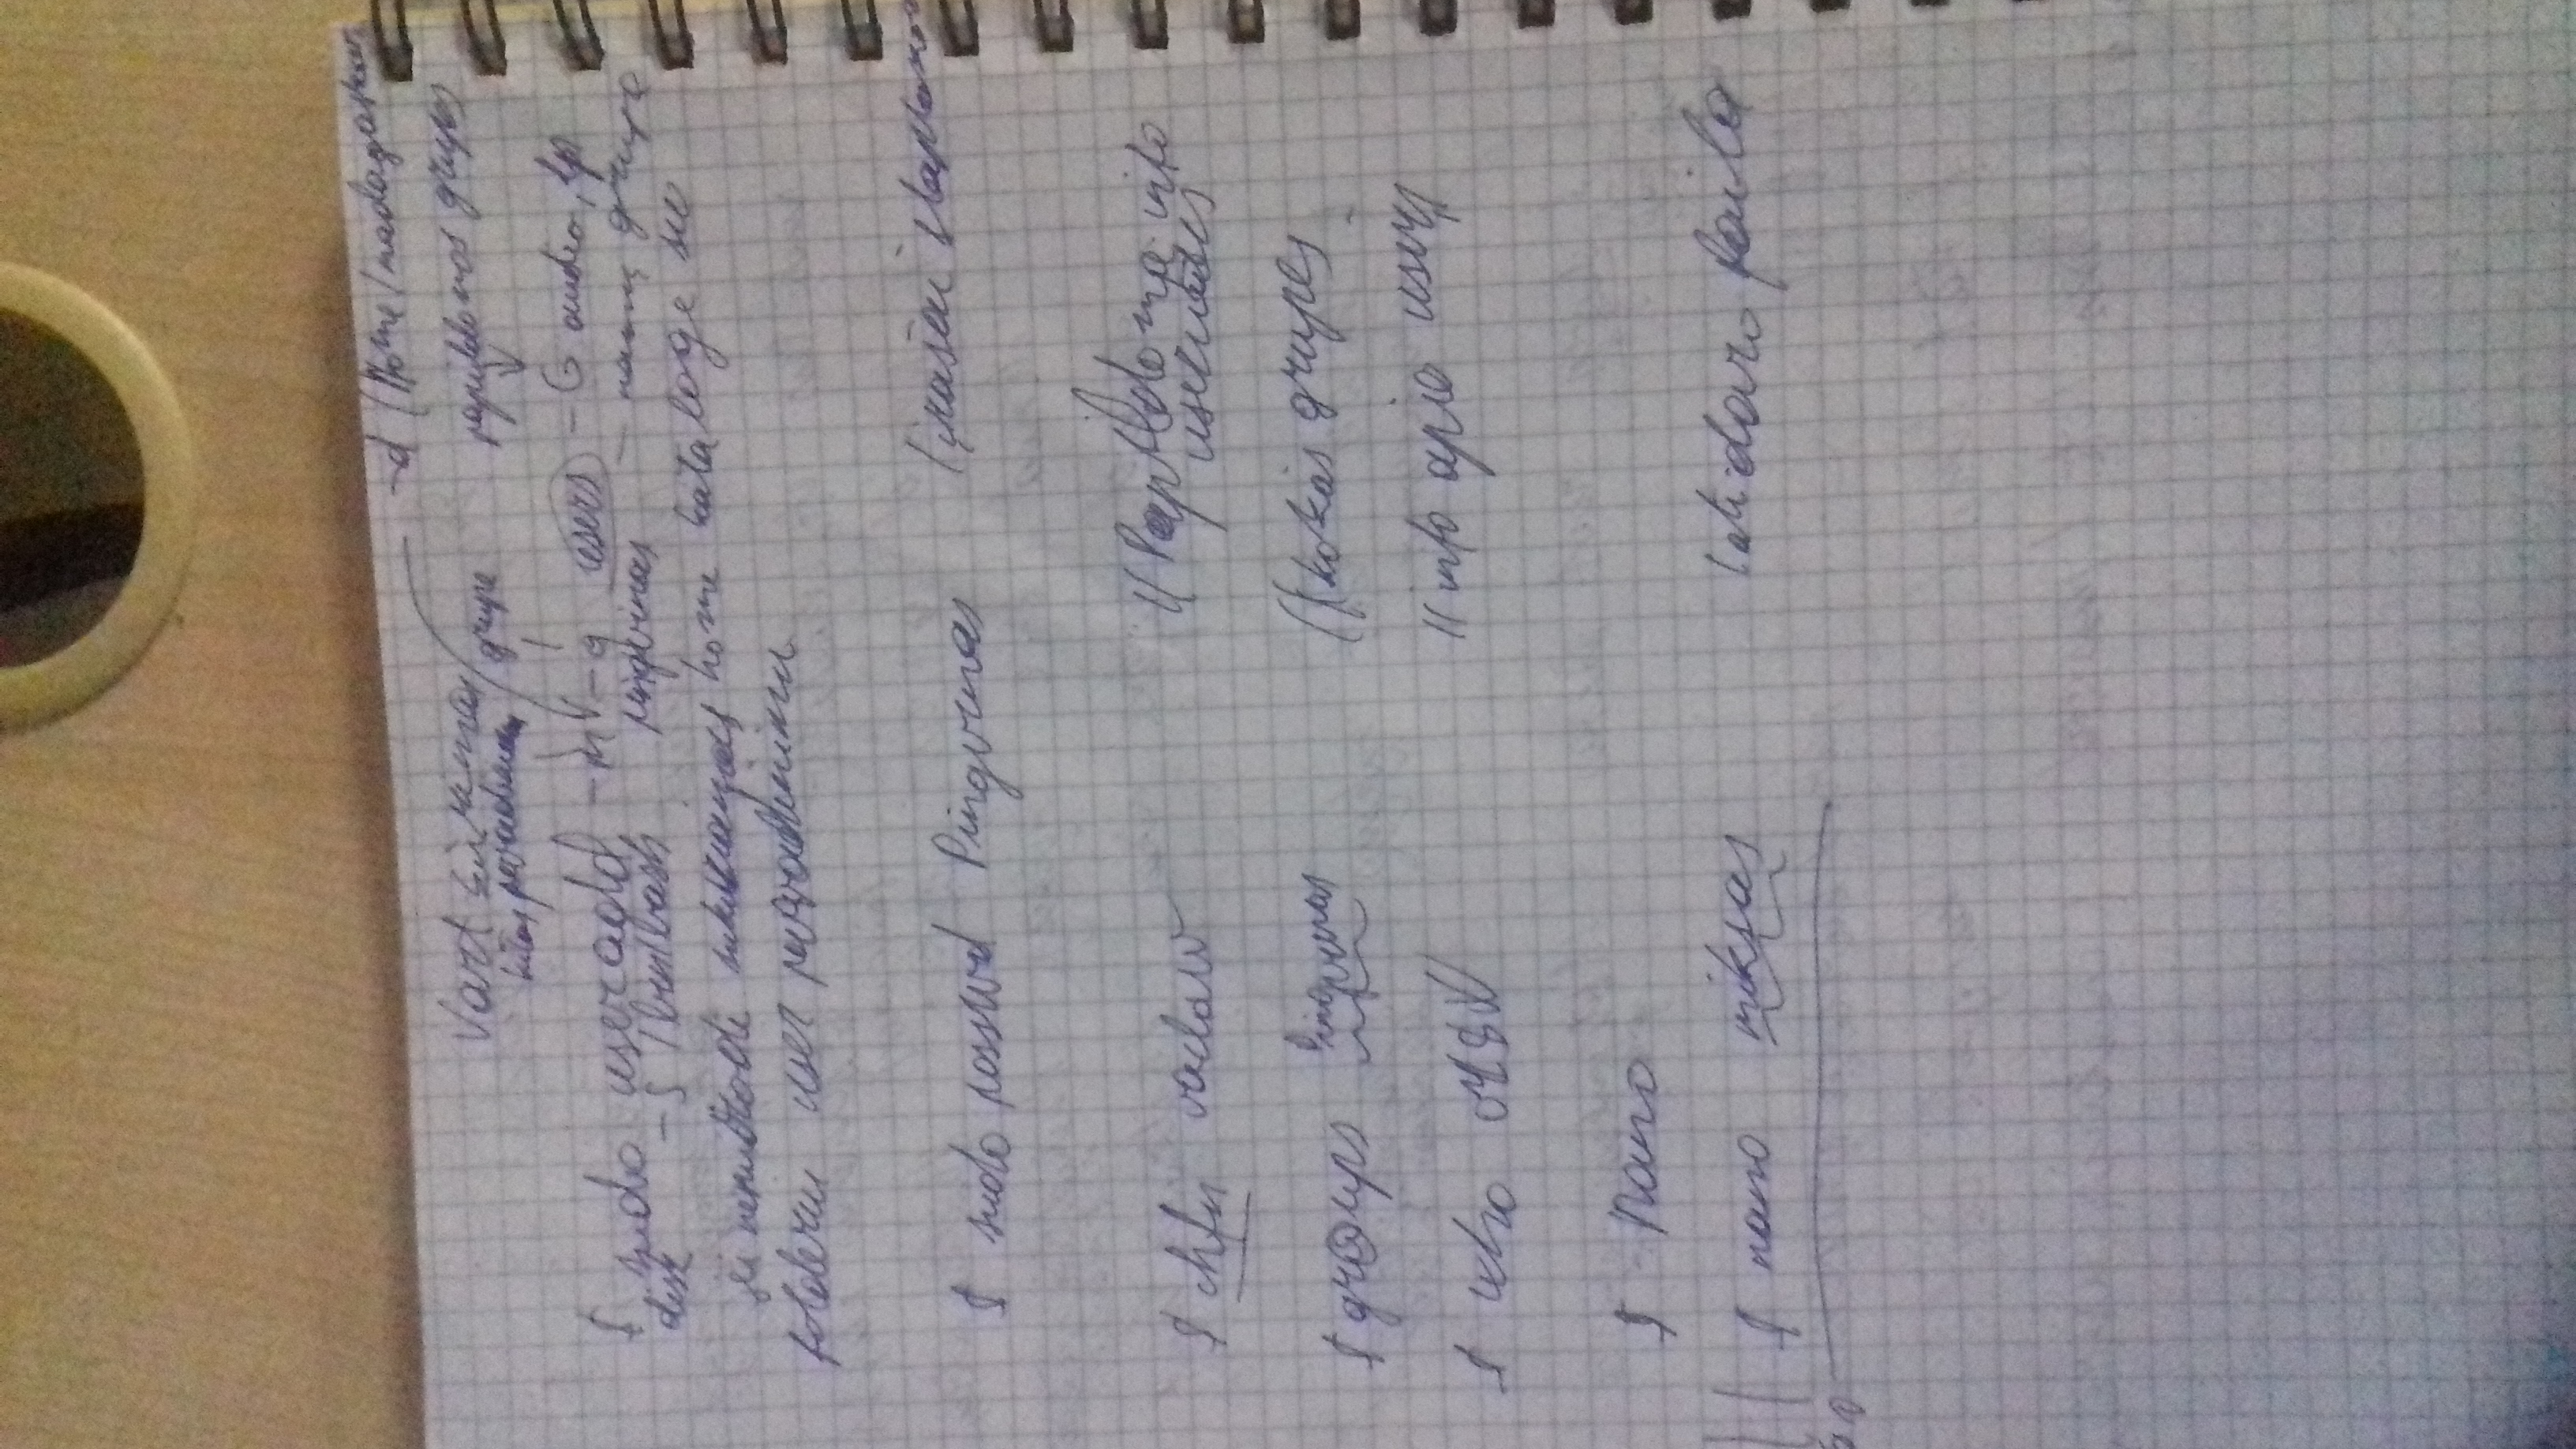 -d (Home/madagaskar
Vart kūrimas
kitas pavadinimas grupe papildomos grupės
$ sudo useradd -m -g users -G audio, lp
disk -s /bin/bash pingvinas - namų grupe
jei nenurodi home kataloge su
folderiu user pavadinimu
$ sudo passwd Pingvinas /įrašai slaptažo
$ chfn vaclaw // Papildoma info
$ groups Pingvinas // kokias grupes
$ who // info apie userį
$ nano
$ nano miksas /atidaro faila